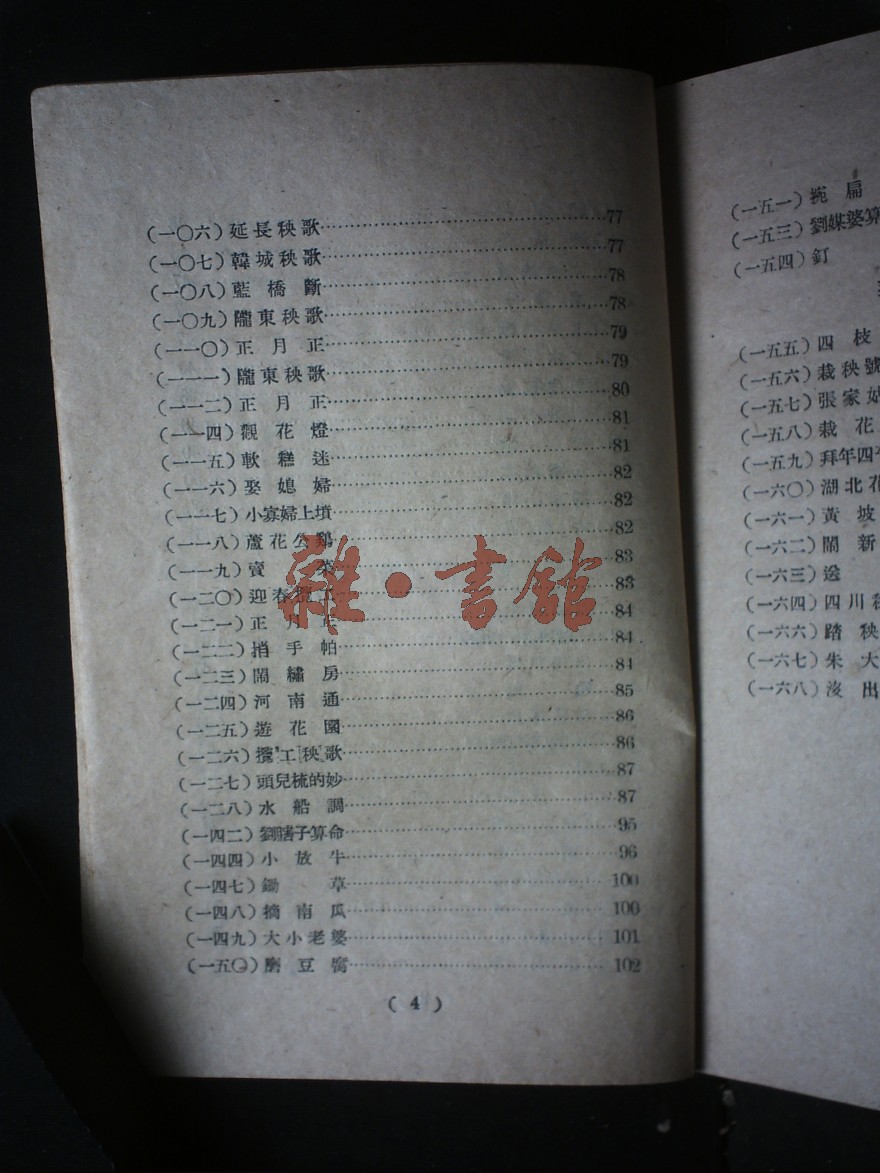 (一〇六)延長秧歌……77
(一〇七)韓城秧歌……77
(一〇八)藍橋斷……78
(一〇九)隴東秧歌……78
(一一〇)正月正……79
(一一一)隴東秧歌……79
(一一二)正月正……80
(一一四)觀花燈……81
(一一五)軟糕迷……81
(一一六)娶媳婦……82
(一一七)小寡婦上墳……82
(一一八)蘆花公鷄……82
(一一九)賣菜……83
(一二〇)迎春……83
(一二一)正月……84
(一二二)捎手帕……84
(一二三)鬧繡房……84
(一二四)河南通……85
(一二五)遊花園……86
(一二六)攬工秧歌……86
(一二七)頭兒梳的妙……87
(一二八)水船調……87
(一四二)劉瞎子算命……95
(一四四)小放牛……96
(一四七)鋤草……100
(一四八)摘南瓜……100
(一四九)大小老婆……101
(一五〇)磨豆腐……102
(4)
雜·書館
(一五一)扁
(一五三)劉媒婆算
(一五四)釘
(一五五)四枝
(一五六)栽秧號
(一五七)張家姑
(一五八)栽花
(一五九)拜年四
(一六〇)湖北花
(一六一)黃坡
(一六二)鬧新
(一六三)送
(一六四)四川
(一六六)踏秧
(一六七)朱大
(一六八)沒出